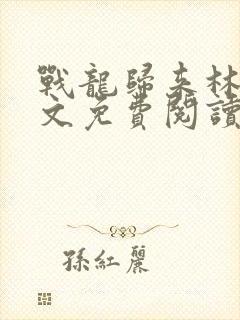 戰龍歸来林
文免費閱讀
孫紅麗